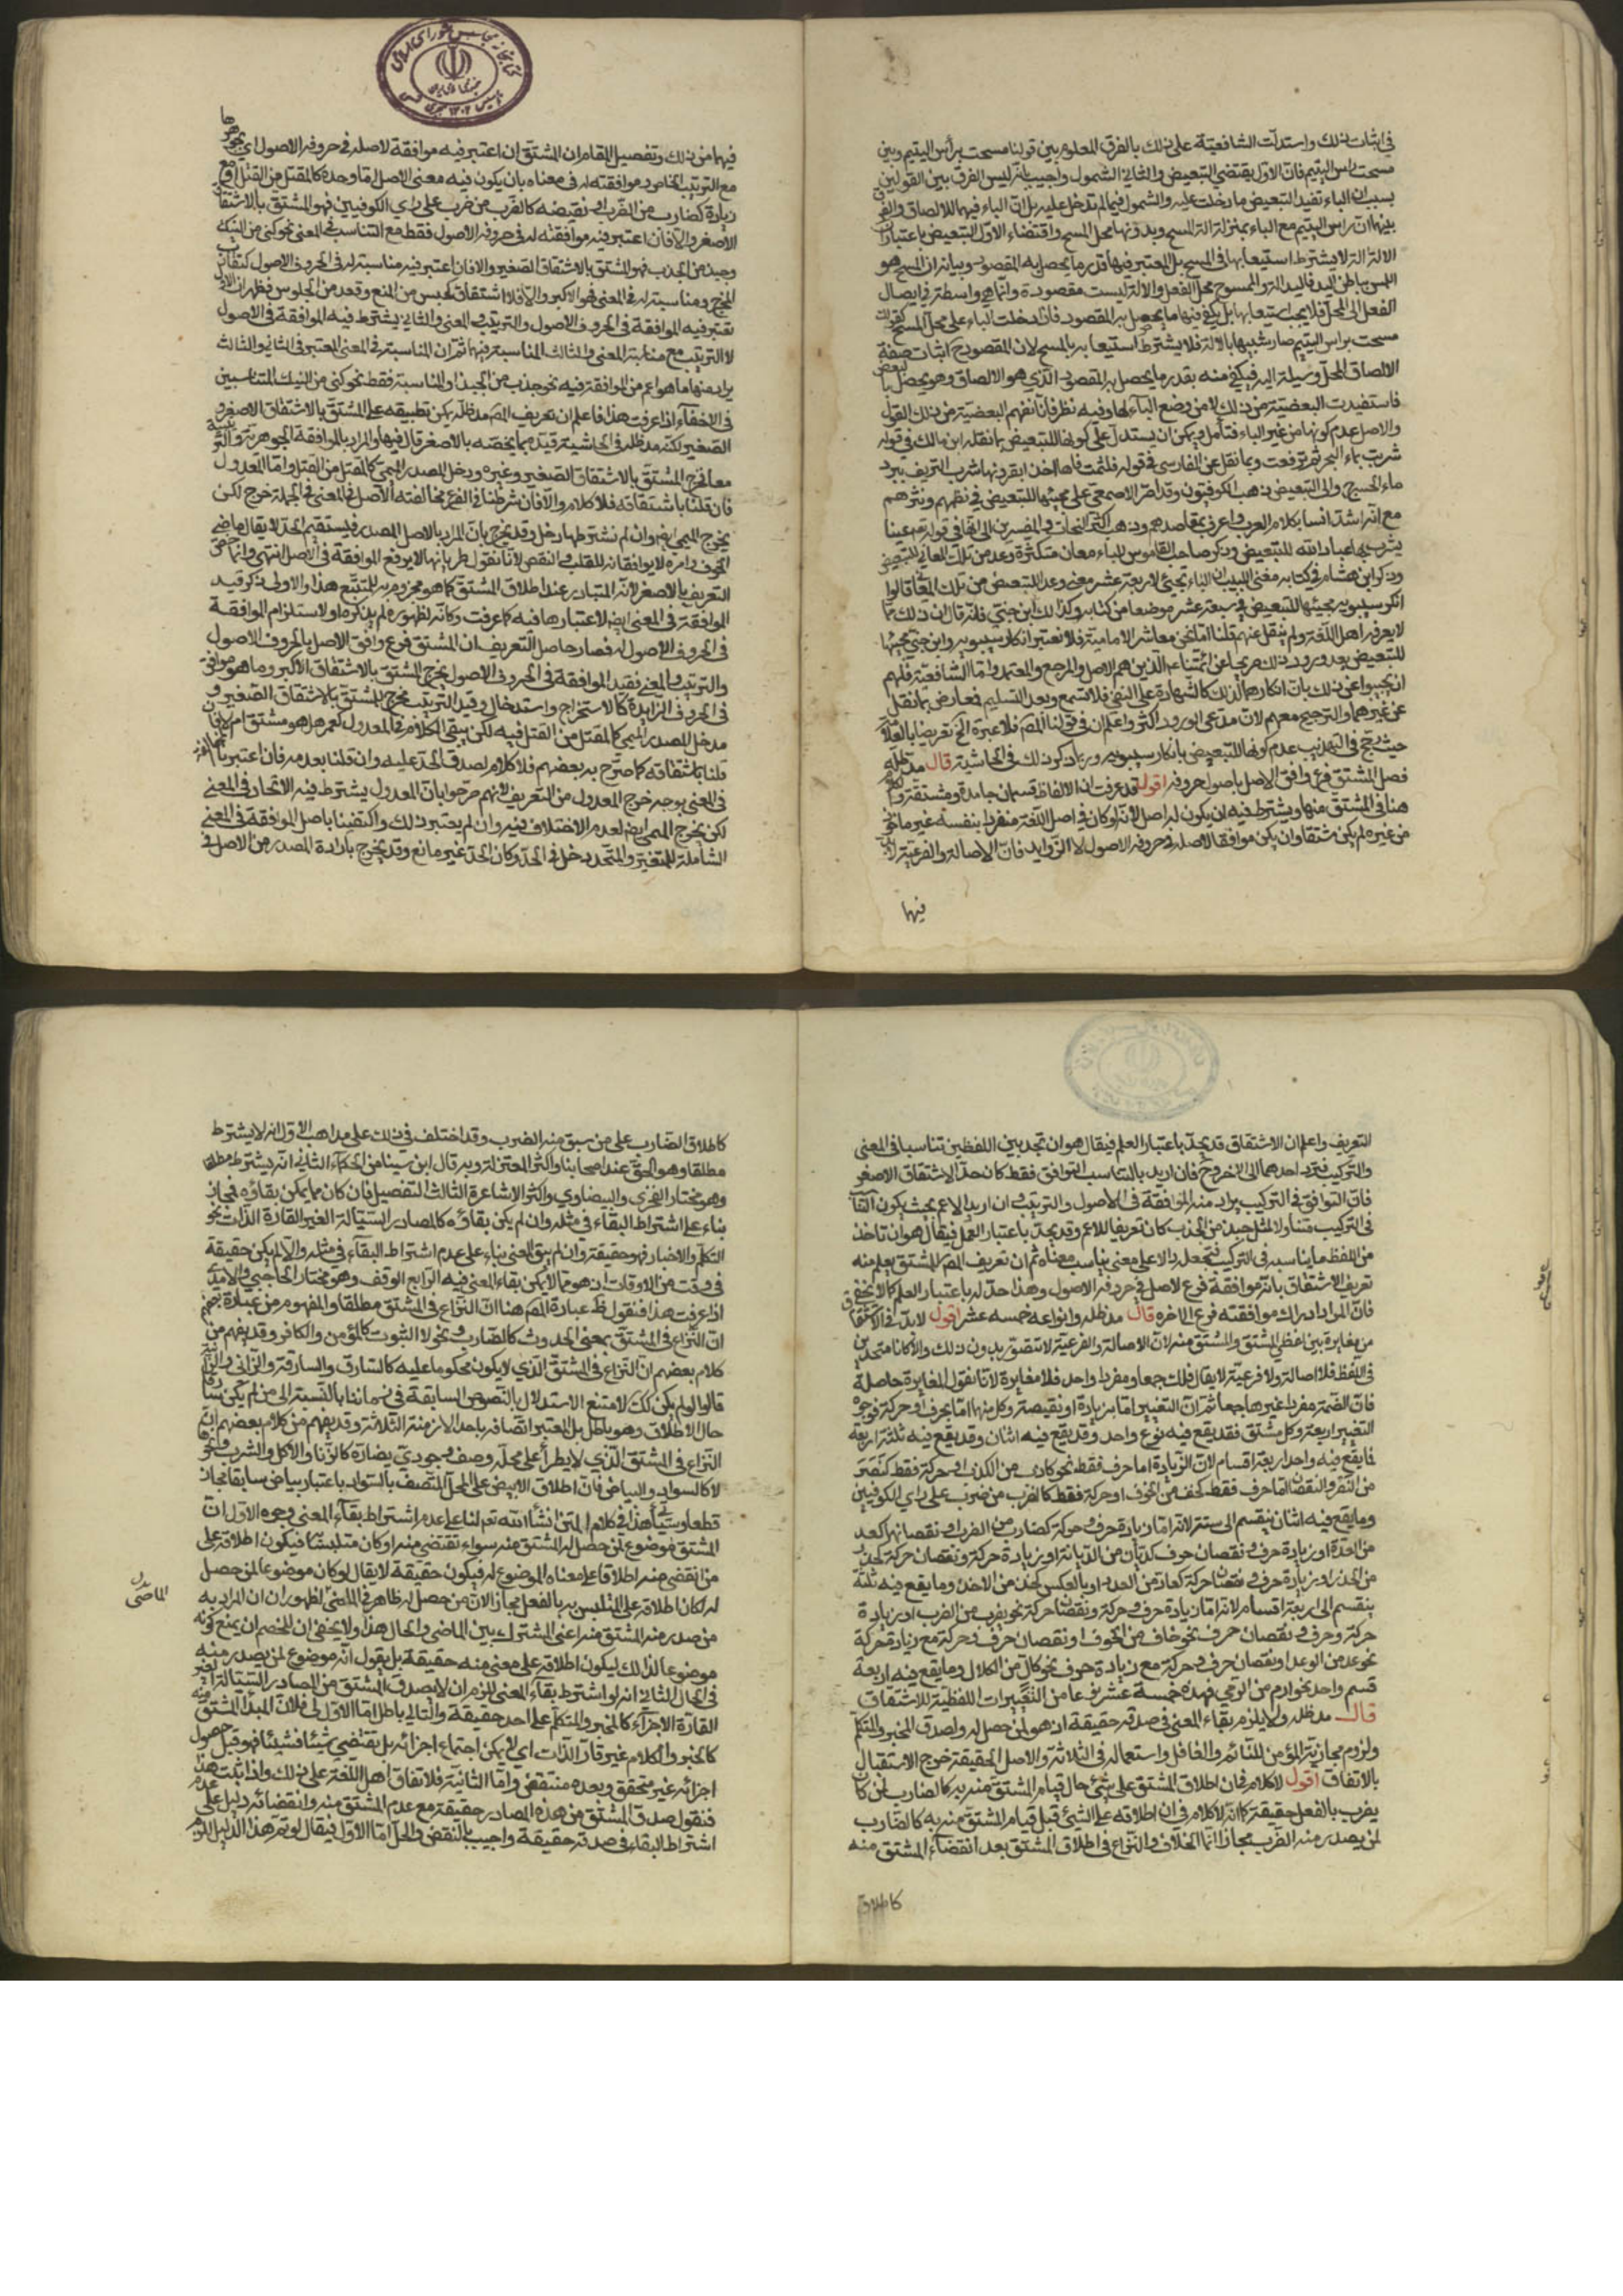 في اثبات ذلك واستدلت الشافعية على ذلك بالفرق المعلوم بين قولنا مسحت برأس اليتيم وبين
مسحت راس اليتيم فان الاول يقتضي التبعيض والثاني الشمول واجيب بانه ليس الفرق بين القولين
بسبب ان الباء تفيد التبعيض ما دخلت عليه والشمول فيما لم تدخل عليه بل ان الباء فيهما للالصاق والفرق
بينهما ان براس اليتيم مع الباء بمنزلة الة المسح وبدونها محل المسح واقتضاء الاول التبعيض باعتبار ان
الالة لا يشترط استيعابها في المسح بل المعتبر فيها قدر ما يحصل به المقصود وبيانه ان المسح هو
المس بباطن اليد فاليد الة والممسوح محل الفعل والالة ليست مقصودة وانما هي واسطة في ايصال
الفعل الى المحل فلا يجب استيعابها بل يكفي فيها ما يحصل به المقصود فاذا دخلت الباء على محل المسح كقولك
مسحت براس اليتيم صار شبيها بالالة فلا يشترط استيعابه بالمسح لان المقصود ح اثبات صفة
الالصاق والمحل وسيلة اليه فيكفي منه بقدر ما يحصل به المقصود الذي هو الالصاق وهو يحصل بالبعض
فاستفيدت البعضية من ذلك لا من وضع الباء لها وفيه نظر فانا نفهم البعضية من ذلك القول
والاصل عدم كونها من غير الباء فتأمل ويمكن ان يستدل على كونها للتبعيض بما نقله ابن مالك في قوله
شربت بماء البحر ثم ترفعت وبما نقل عن الفارسي في قوله فلثمت فاها اخذا بقرونها شرب النزيف ببرد
ماء الحشرج والى التبعيض ذهب الكوفيون وقد اصر الاصمعي على مجيئها للتبعيض في نظمهم ونثرهم
مع انه اشد انسا بكلام العرب واعرف بمقاصدهم وذهب اكثر النحات والمفسرين الى انها في قوله تع عينا
يشرب بها عباد الله للتبعيض وذكر صاحب القاموس للباء معان متكثرة وعد من تلك المعاني التبعيض
وذكر ابن هشام في كتابه مغني اللبيب ان الباء تجيئ لاربعة عشر معنى وعد التبعيض من تلك المعاني قالوا
انكر سيبويه مجيئها للتبعيض في سبعة عشر موضعا من كتابه وكذا لك ابن جني فانه قال ان ذلك مما
لا يعرفه اهل اللغة ولم ينقل عنهم قلنا اما نحن معاشر الامامية فلا نعتبر انكار سيبويه وابن جني مجيئها
للتبعيض بعد ورود ذلك صريحا عن ائمتنا ع الذين هم الاصل والمرجع والمعتمد واما الشافعية فلهم
ان يجيبوا عن ذلك بان انكارهما لذلك كالشهادة على النفي فلا تسمع وبعد التسليم فمعارض بما نقل
عن غيرهما والترجيح معهم لان مدعى الورود اكثر واعلم ان في قولنا المصنف فلا عبرة الخ تعريضا بالعلامة
حيث رجح في التهذيب عدم كونها للتبعيض بانكار سيبويه وربما ذكر ذلك في الحاشية قال مد ظله
فصل المشتق فرع وافق الاصل باصول حروفه اقول قد عرفت ان الالفاظ قسمان جامدة ومشتقة والكلام
هنا في المشتق منها ويشترط فيه ان يكون له اصل لانه لو كان في اصل اللغة منفردا بنفسه غير ماخوذ
من غيره لم يكن مشتقا وان يكون موافقا لاصله في حروفه الاصول لا الزوايد فان الاصالة والفرعية لا
فيها
فيهما من ذلك وتفصيل المقام ان المشتق ان اعتبر فيه موافقة لاصله في حروفه الاصول اي بجوهرها
مع الترتيب الخاص وموافقته له في معناه بان يكون فيه معنى الاصل اما وحده كالمقتل من القتل او مع
زيادة كضارب من الضرب او نقيصه كالضرب من ضرب على راي الكوفيين فهو المشتق بالاشتقاق
الاصغر والا فان اعتبر فيه موافقته له في حروفه الاصول فقط مع التناسب في المعنى نحو كنى من النيك
وجبذ من الجذب فهو المشتق بالاشتقاق الصغير والا فان اعتبر فيه مناسبته له في الحروف الاصول كتقارب
المخرج ومناسبته له في المعنى فهو الاكبر والا فلا اشتقاق كحبس من المنع وقعد من الجلوس فظهر ان الاول
تعتبر فيه الموافقة في الحروف الاصول والترتيب والمعنى والثاني يشترط فيه الموافقة في الاصول
لا الترتيب مع مناسبة المعنى والثالث المناسبة فيهما ثم ان المناسبة في المعنى المعتبر في الثاني والثالث
يراد منها ما هو اعم من الموافقة فيه نحو جذب من الجبذ او المناسبة فقط نحو كنى من النيك المتناسبين
في الاخفاء اذا عرفت هذا فاعلم ان تعريف المصنف مد ظله يمكن تطبيقه على المشتق بالاشتقاق الاصغر و
الصغير لكنه مد ظله في الحاشية قيده بما يخصه بالاصغر قال فيها والمراد بالموافقة الجوهرية والترتيبية
معا فخرج المشتق بالاشتقاق الصغير وغيره ودخل المصدر الميمي كالمقتل من القتل واما المعدول
فان قلنا باشتقاقه فلا كلام والا فان شرطنا في الفرع مخالفته الاصل في المعنى في الجملة خرج لكن
يخرج الميمي ايضا وان لم نشترطها دخل وقد يخرج بان المراد بالاصل المصدر فيستقيم الحد
التعريف بالاصغر لانه المتبادر عند اطلاق المشتق كما هو مجزوم به للمتتبع هذا والاولى ذكر قيد
الموافقة في المعنى ايضا لاعتبارها فيه كما عرفت وكانه لظهوره لم يذكره او لاستلزام الموافقة
في الحروف الاصول له فصار حاصل التعريف ان المشتق فرع وافق الاصل بالحروف الاصول
والترتيب والمعنى فقيد الموافقة في الحروف الاصول يخرج المشتق بالاشتقاق الاكبر وما هو موافق
في الحروف الزايدة كالاستخراج والاستدخال وقيد الترتيب مخرج للمشتق بالاشتقاق الصغير و
مدخل المصدر الميمي كالمقتل من القتل فيه لكن يبقى الكلام في المعدول كعمر هل هو مشتق ام لا فان
قلنا باشتقاقه كما صرح به بعضهم فلا كلام لصدق الحد عليه وان قلنا بعدمه فان اعتبرنا المخالفة
في المعنى بوجه خرج المعدول من التعريف لانهم صرحوا بان المعدول يشترط فيه الاتحاد في المعنى
لكن يخرج الميمي ايضا لعدم الاختلاف فيه وان لم يعتبر ذلك واكتفينا باصل الموافقة في المعنى
الشاملة للمتغير والمتحد دخل في الحد وكان الحد غير مانع وقد يخرج بارادة المصدر من الاصل في
التعريف واعلم ان الاشتقاق قد يحد باعتبار العلم فيقال هو ان تجد بين اللفظين تناسبا في المعنى
والتركيب فترد احدهما الى الاخر وح فان اريد بالتناسب التوافق فقط كان حد الاشتقاق الاصغر
فان التوافق في التركيب يراد منه الموافقة في الاصول والترتيب وان اريد الاعم بحيث يكون التناسب
في التركيب متناولا لمثل جبذ من الجذب كان تعريفا للاعم وقد يحد باعتبار العمل فيقال هو ان تاخذ
من اللفظ ما يناسبه في التركيب فتجعله دالا على معنى يناسب معناه ثم ان تعريف المصنف للمشتق يعلم منه
تعريف الاشتقاق بانه موافقة فرع لاصل في حروفه الاصول وهذا حد له باعتبار العلم كما لا يخفى
فان المراد ادراك موافقته فرع الى اخره قال مد ظله وانواعه خمسه عشر اقول لا بد في الاشتقاق
من مغايرة بين لفظي المشتق والمشتق منه لان الاصالة والفرعية لا تتصور بدون ذلك والا كانا متحدين
في اللفظ فلا اصالة ولا فرعية لا يقال فلك جمعا ومفردا واحد فلا مغايرة لانا نقول المغايرة حاصلة
فان الضمة مفردا غيرها جمعا ثم ان التغيير اما بزيادة او نقيصة وكل منهما اما بحرف او حركة فوجوه
التغيير اربعة وكل مشتق فقد يقع فيه نوع واحد وقد يقع فيه اثنان وقد يقع فيه ثلثة او اربعة
فما يقع فيه واحد اربعة اقسام لان الزيادة اما حرف فقط نحو كاذب من الكذب او حركة فقط كنصر
من النصر والنقصان اما حرف فقط كخف من الخوف او حركة فقط كالضرب من ضرب على راي الكوفيين
وما يقع فيه اثنان ينقسم الى ستة لانه اما زيادة حرف وحركة كضارب من الضرب او نقصانهما كعد
من العدة او زيادة حرف ونقصان حرف كديان من الديانة او زيادة حركة ونقصان حركة كحذر
من الحذر او زيادة حرف ونقصان حركة كعاد من العدد او بالعكس كخذ من الاخذ وما يقع فيه ثلثة
ينقسم الى اربعة اقسام لانه اما زيادة حرف وحركة ونقصان حركة نحو يضرب من الضرب او زيادة
حركة وحرف ونقصان حرف نحو خاف من الخوف او نقصان حرف وحركة مع زيادة حركة
نحو عد من الوعد او نقصان حرف وحركة مع زيادة حرف نحو كال من الكلال وما يقع فيه اربعة
قسم واحد نحو ارم من الرمي فهذه خمسة عشر نوعا من التغييرات اللفظية للاشتقاق
قال مد ظله ولا يلزم بقاء المعنى في صدقه حقيقة اذ هو لمن حصل له ولصدق المخبر والمتكلم
ولزوم مجازية المؤمن للنائم والغافل واستعماله في الثلاثة والاصل الحقيقة خرج الاستقبال
بالاتفاق اقول لا كلام في ان اطلاق المشتق على شيئ حال قيام المشتق منه به كالضارب لمن كان
يضرب بالفعل حقيقة كما انه لا كلام في ان اطلاقه على الشيئ قبل قيام المشتق منه به كالضارب
لمن يصدر منه الضرب مجاز انما الخلاف والنزاع في اطلاق المشتق بعد انقضاء المشتق منه
كاطلاق
كاطلاق الضارب على من سبق منه الضرب وقد اختلف في ذلك على مذاهب الاول انه لا يشترط
مطلقا وهو الحق عند اصحابنا واكثر المعتزلة وبه قال ابن سينا من الحكماء الثاني انه يشترط مطلقا
وهو مختار الفخري والبيضاوي واكثر الاشاعرة الثالث التفصيل فان كان مما يمكن بقاؤه فمجاز
بناء على اشتراط البقاء في مثله وان لم يكن بقاؤه كالمصادر السيالة الغير القارة الذات نحو
التكلم والاخبار فهو حقيقة وان لم يبق المعنى بناء على عدم اشتراط البقاء في مثله والا لم يكن حقيقة
في وقت من الاوقات اذ هو مما لا يمكن بقاء المعنى فيه الرابع الوقف وهو مختار الحاجبي والامدي
اذا عرفت هذا فنقول ظ عبارة المصنف هنا ان النزاع في المشتق مطلقا والمفهوم من عبارة بعضهم
ان النزاع في المشتق بمعنى الحدوث كالضارب ونحوه لا الثبوت كالمؤمن والكافر وقد يفهم من
كلام بعضهم ان النزاع في المشتق الذي لا يكون محكوما عليه كالسارق والسارقة والزاني والزانية
قالوا لو لم يكن كك لامتنع الاستدلال بالنصوص السابقة في زماننا بالنسبة الى من لم يكن سارقا
حال الاطلاق وهو باطل بل المعتبر اتصافه باحد الازمنة الثلاثة وقد يفهم من كلام بعضهم ان
النزاع في المشتق الذي لا يطرأ على محله وصف وجودي يضاده كالزنا والاكل والشرب ونحوها
لا كالسواد والبياض فان اطلاق الابيض على المحل المتصف بالسواد باعتبار بياض سابقا مجاز
قطعا وسيأتي هذا في كلام المتن انشأ الله تع لنا على عدم اشتراط بقاء المعنى وجوه الاول ان
المشتق موضوع لمن حصل له المشتق منه سواء تقتضى منه او كان متلبسا فيكون اطلاقه على
من انقضى منه اطلاقا على معناه الموضوع له فيكون حقيقة لا يقال لو كان موضوعا لمن حصل
له لكان اطلاقه على المتلبس به بالفعل مجازا لان من حصل له ظاهر في الماضي لظهور ان المراد به
من صدر منه المشتق منه اعني المشترك بين الماضي والحال هذا ولا يخفى ان للخصم ان يمنع كونه
موضوعا لذلك ليكون اطلاقه على معنى منه حقيقة بل يقول انه موضوع لمن يصدر منه
في الحال الثاني انه لو اشترط بقاء المعنى للزم ان لا يصدق المشتق من المصادر السيالة الغير
القارة الاجزاء كالمخبر والمتكلم على احد حقيقة والتالي باطل اما الاول فلان المبدأ المشتق منه
كالخبر والكلام غير قار الذات اي لا يمكن اجتماع اجزائه بل يقتضي شيئا فشيئا فهو قبل حصول
اجزائه غير متحقق وبعده منتقض واما الثانية فلاتفاق اهل اللغة على ذلك واذا ثبت هذا
فنقول صدق المشتق من هذه المصادر حقيقة مع عدم المشتق منه وانقضائه دليل على عدم
اشتراط البقاء في صدقه حقيقة واجيب بالنقض والحل اما الاول فيقال لو تم هذا الدليل لزم